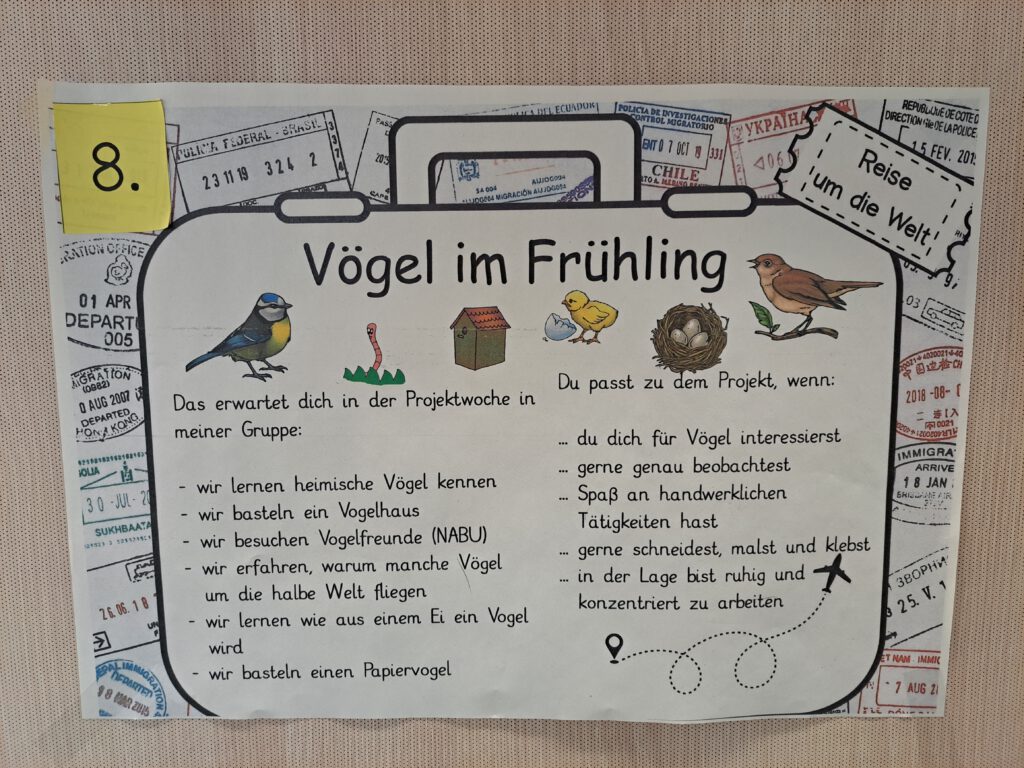 8.
POLICIA FEDERAL - BRASIL
23 11 19 324 2
DEL ECUADOR
SA 004
AIJOG094
AIJOG004 MIGRACIÓN AIJOG094
POLICIA DE INVESTIGACIONES
CONTROL MIGRATORIO
07 OCT 19 331
CHILE
УКРАЇНА
REPUBLIQUE DE COTE D
DIRECTION
DE LA POLICE
15 FEV. 201
Reise
um die Welt
Vögel im Frühling
RATION OFFICE
01 APR
DEPART
005
Das erwartet dich in der Projektwoche in
meiner Gruppe:
- wir lernen heimische Vögel kennen
- wir basteln ein Vogelhaus
- wir besuchen Vogelfreunde (NABU)
- wir erfahren, warum manche Vögel
um die halbe Welt fliegen
- wir lernen wie aus einem Ei ein Vogel
wird
- wir basteln einen Papiervogel
Du passt zu dem Projekt, wenn:
... du dich für Vögel interessierst
... gerne genau beobachtest
... Spaß an handwerklichen
Tätigkeiten hast
... gerne schneidest, malst und klebst
... in der Lage bist ruhig und
konzentriert zu arbeiten
MIGRATION
(0682)
0 AUG 2007
DEPARTED
HONG KONG
OLIA
30 -JUL- 20
SUKHBAATA
26.06.18
PAL IMMIGRATION
DEPARTED
.03
2018-08-
IMMIGRA
ARRIVE
18 JAN
BRISBANE
ЗВОРНИ
25. V. 1
ET NAM - IMMIG
- 7 AUG 2